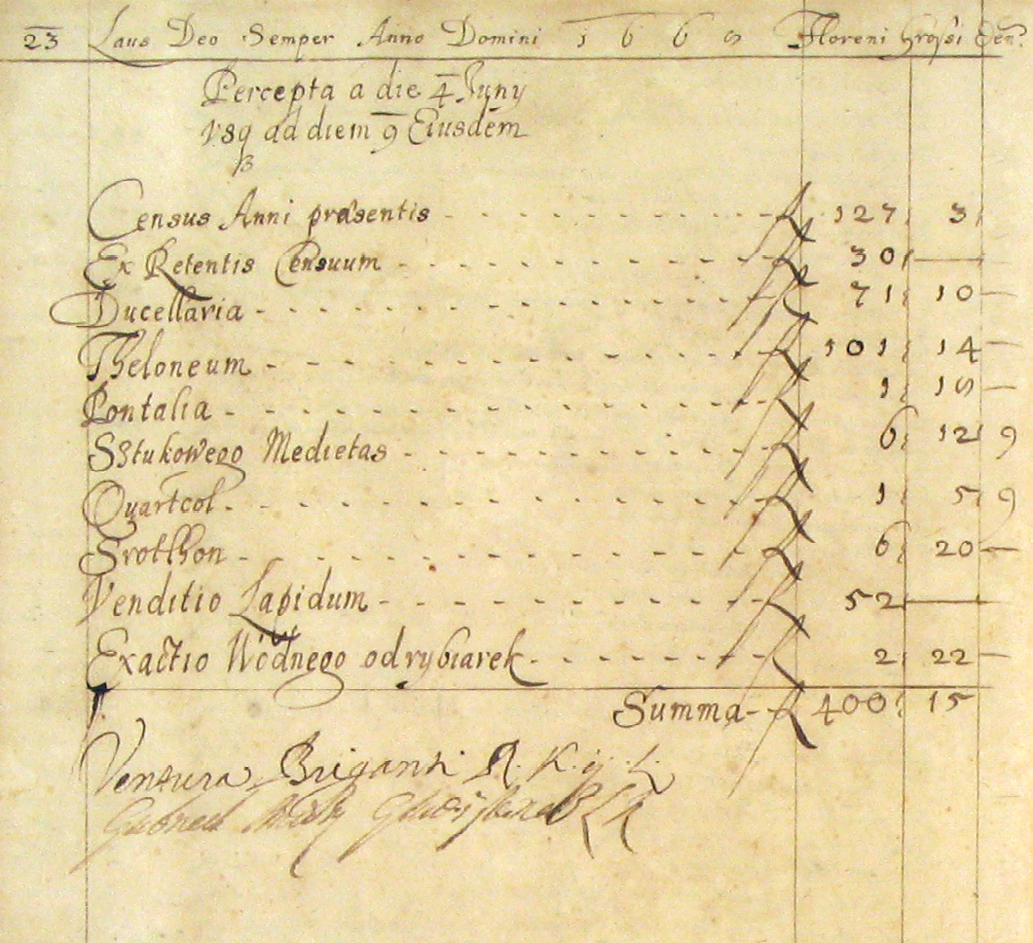 23 Laus Deo Semper Anno Domini 1668 Floreni Grossi Den:
Percepta a die 4 Juny
Vsq ad diem 9 Eiusdem
Census Anni præsentis - fl 127 3
Ex Retentis Censuum - fl 30 —
Ducellaria - fl 71 10 —
Theloneum - fl 101 14 —
Pontalia - fl 1 18 —
Sztukowego Medietas - fl 6 12 9
Quartcol - fl 1 5 9
Srotthon - fl 6 20 —
Venditio Lapidum - fl 52 —
Exactio Wódnego od rybiarek - fl 2 22 —
Summa - fl 400 15
Ventura Briganti R. K.